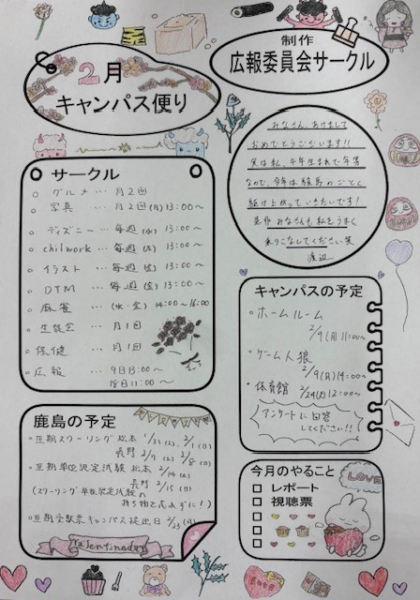 2月
キャンパス便り
制作
広報委員会サークル
みなさん、あけまして
おめでとうございます!!
実は私、午年生まれで年男
なので、今年は競馬のごとく
駆け上がっていきたいです!
是非みなさんも私をうまく
乗りこなしてください笑
渡辺
サークル
グルメ … 月2回
写真 … 月2回(月)13:00〜
ディズニー … 毎週(水)13:00〜
chillwork … 毎週(火)13:00〜
イラスト … 毎週(金)13:00〜
DTM … 毎週(金)13:00〜
麻雀 … (水・金)14:00〜16:00
生徒会 … 月1回
保健 … 月1回
広報 … 9日13:00〜
11:00〜
キャンパスの予定
・ホームルーム
2/9(月)11:00〜
・ゲーム人狼
2/9(月)14:00〜
・体育館
12:00〜
アンケートに回答
してください!!
鹿島の予定
・短期スクーリング 松本
長野
・短期単位認定試験 松本
長野
(スクーリング・単位認定試験の
持ち物を忘れずに!)
Valentine day
今月のやること
レポート
視聴票
LOVE